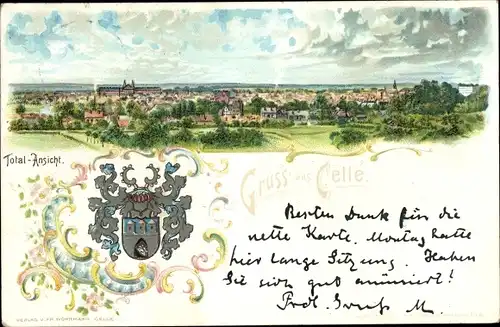 Total-Ansicht.
Gruss aus Celle.
Besten Dank für die
nette Karte. Montag hatte
hier lange Sitzung. Haben
Sie sich gut amüsiert!
Gruß M.
VERLAG V. FR. CELLE